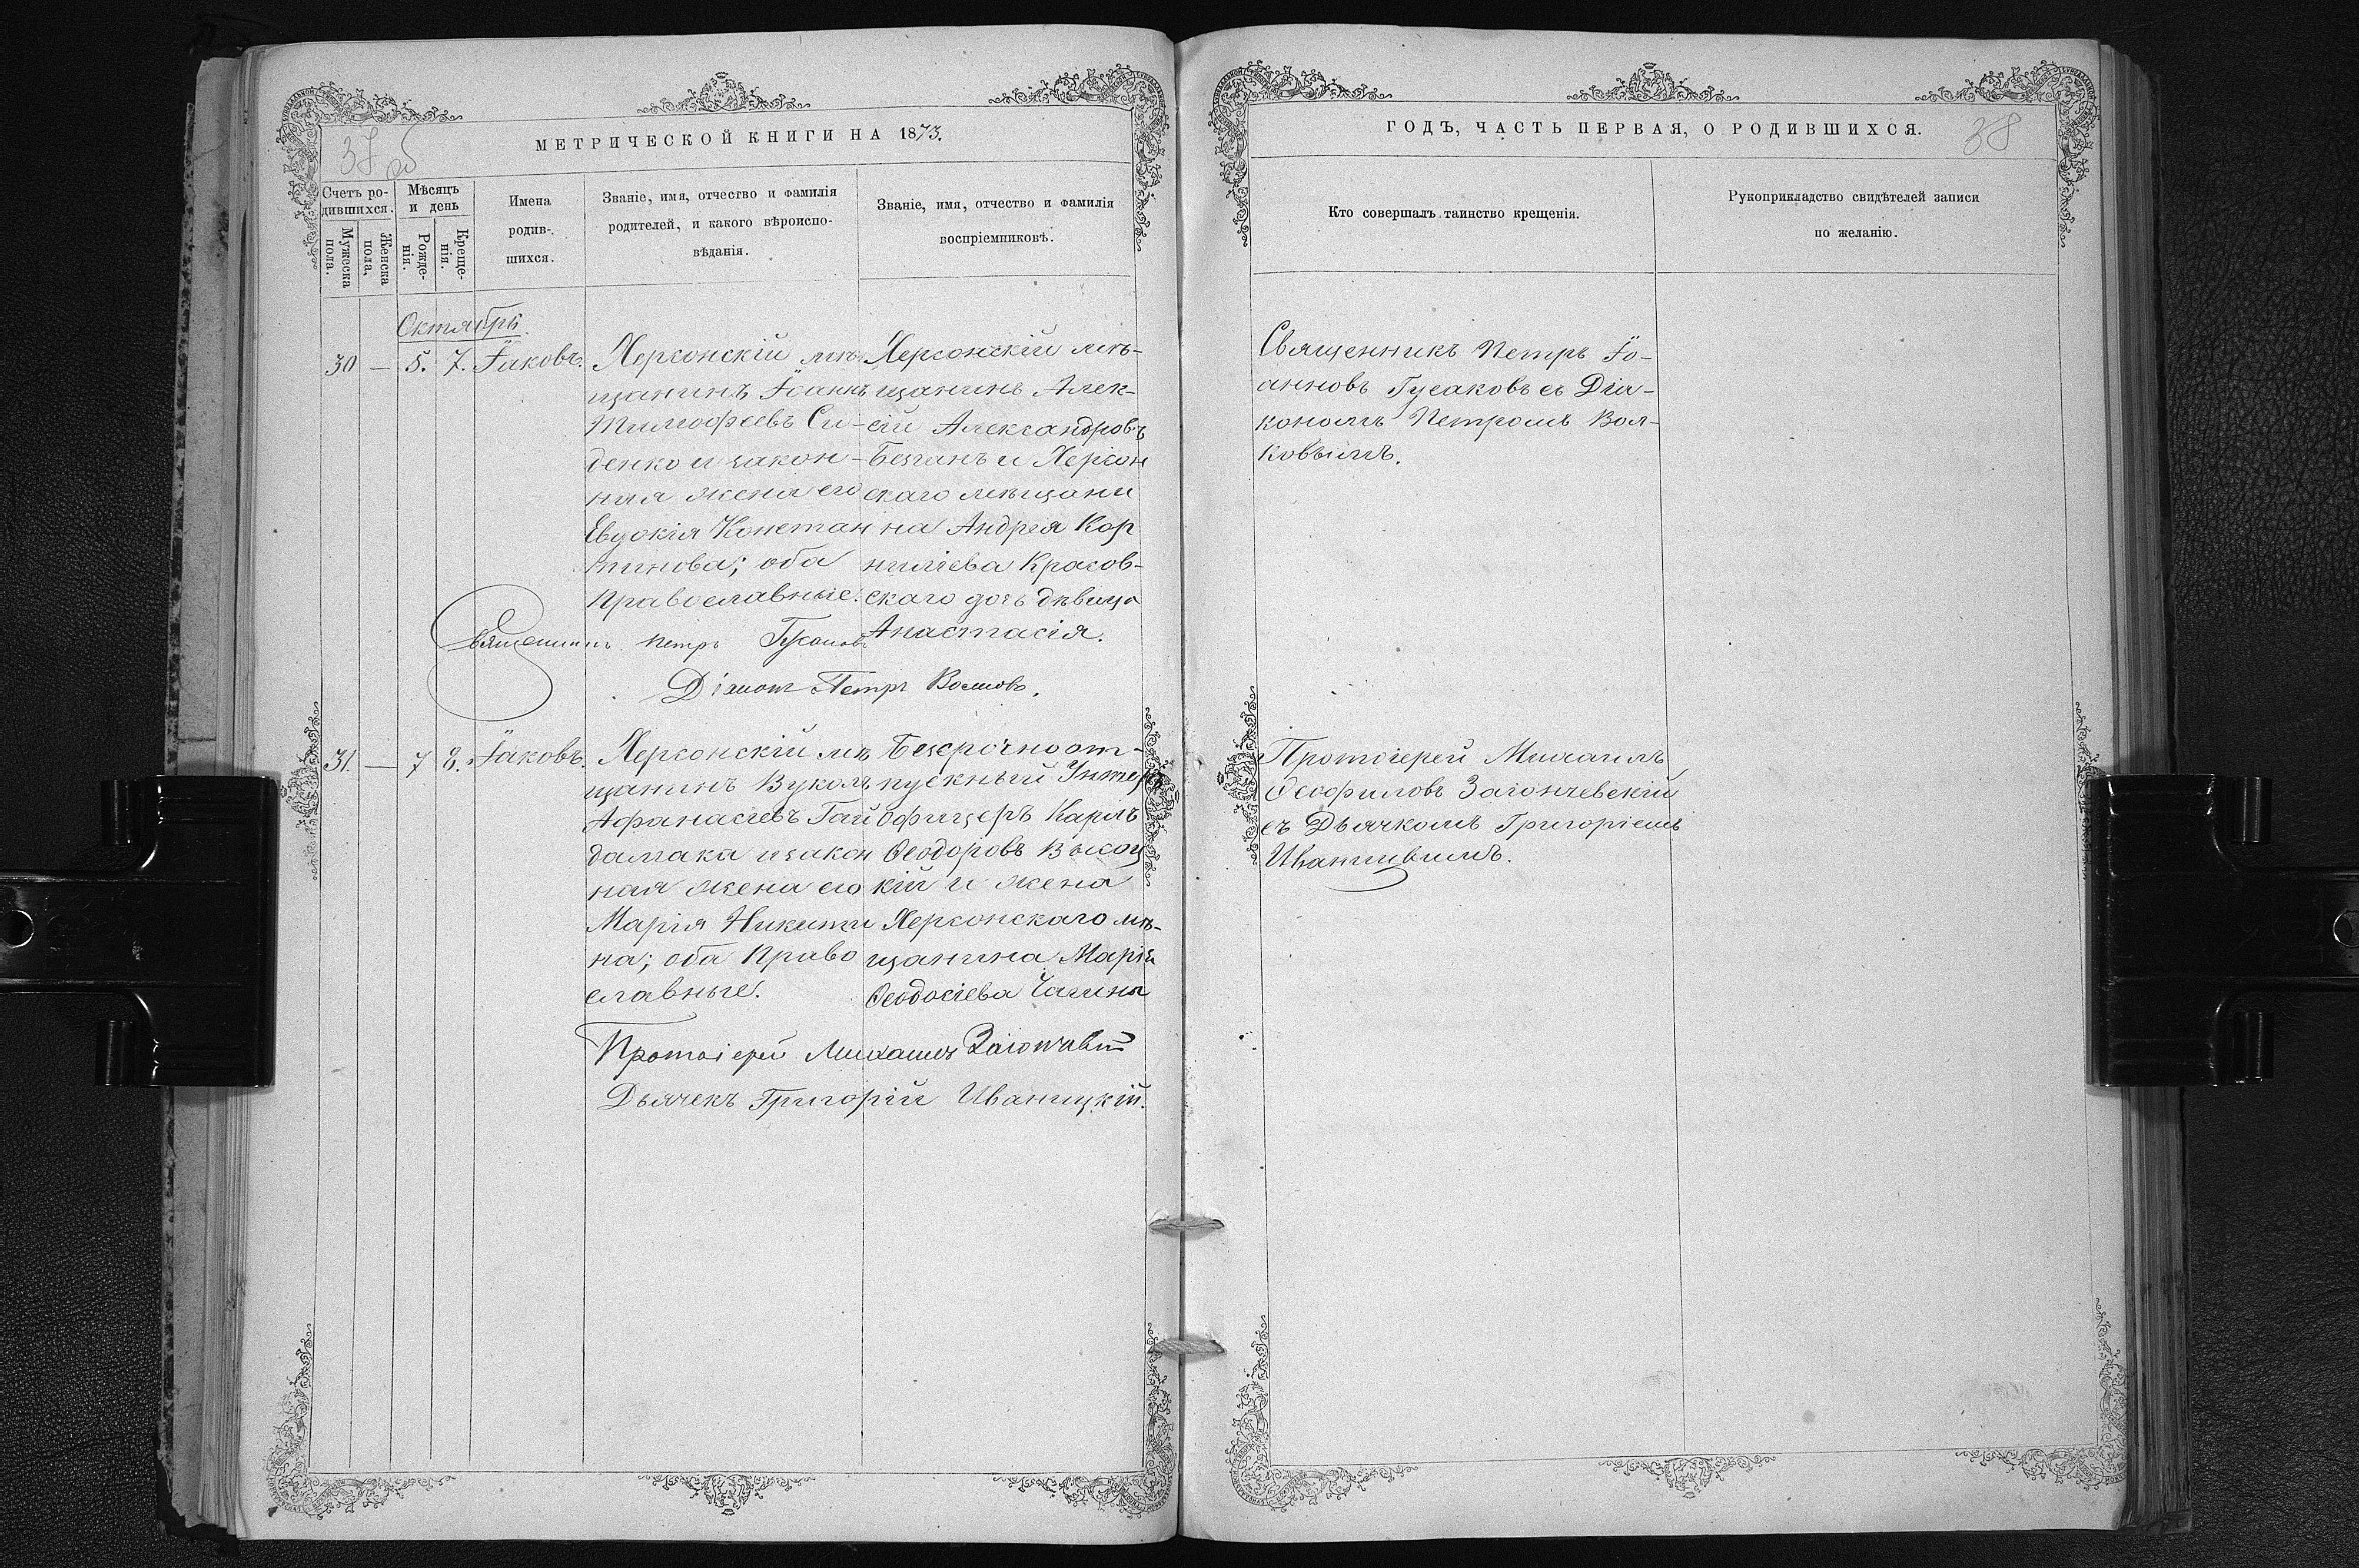 37 об
МЕТРИЧЕСКОЙ КНИГИ НА 1873.
Счетъ ро-
дившихся.
Мужеска
пола.
Женска
пола.
Мѣсяцъ
и день
Рожде-
нія.
Креще-
нія.
Имена
родив-
шихся.
Званіе, имя, отчество и фамилія
родителей, и какого вѣроиспо-
вѣданія.
Званіе, имя, отчество и фамилія
воспріемниковъ.
Октябрь
30 — 5. 7. Іаковъ.
Херсонскій мѣ
щанинъ Іоаннъ
Тимофеевъ Си-
денко и закон-
ная жена его
Евдокія Констан
тинова; оба
Православные.
Херсонскій мѣ-
щанинъ Алек-
сій Александровъ
Безганъ и Херсон
скаго мѣщани
на Андрея Кор
ниліева Красов-
скаго дочь дѣвица
Анастасія.
Священникъ Петръ Гусаковъ
Діаконъ Петръ Волковъ.
31. — 7 8. Іаковъ.
Херсонскій мѣ
щанинъ Вуколъ
Афанасіевъ Гай
дамака и закон
ная жена его
Марія Никити
на; оба Право
славные.
Безсрочноот-
пускный Унтеръ
Офицеръ Карпъ
Ѳеодоровъ Высоц
кій и жена
Херсонскаго мѣ-
щанина Марія
Ѳеодосіева Чагина
Протоіерей Михаилъ
Дьячекъ Григорій Иваницкій.
ГОДЪ, ЧАСТЬ ПЕРВАЯ, О РОДИВШИХСЯ.
38
Кто совершалъ таинство крещенія.
Рукоприкладство свидѣтелей записи
по желанію.
Священникъ Петръ Іо-
анновъ Гусаковъ съ Діа-
кономъ Петромъ Вол-
ковымъ.
Протоіерей Михаилъ
Ѳеофиловъ Загончевскій
съ Дьячкомъ Григоріемъ